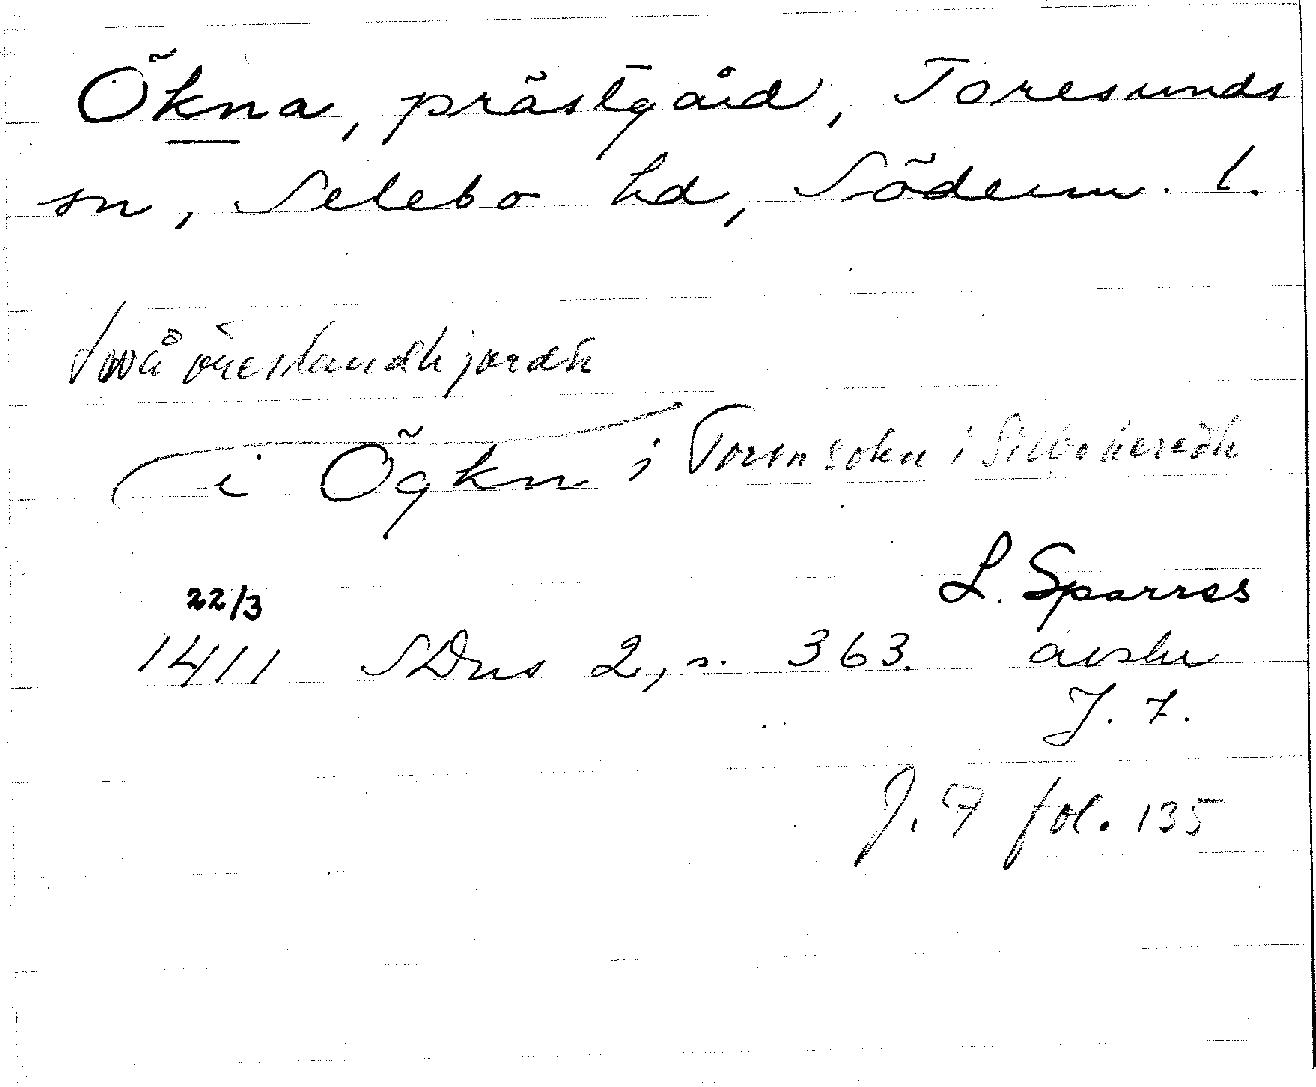 Ökna, prästgård, Toresunds
sn, Selebo hd, Söderm. l.
öreslandh jordh
i Ögkn i Toren sokn i Silbohäredh
22/3
L. Sparres
1411 SDns 2, s. 363. avskr
J. 7.
J. 7 fol. 135